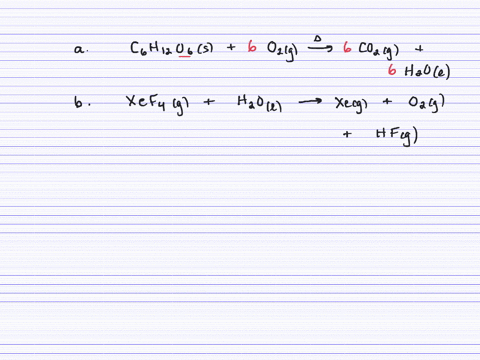 a. C₆H₁₂O₆(s) + 6 O₂(g) →Δ 6 CO₂(g) +
6 H₂O(l)
b. XeF₄(g) + H₂O(l) → Xe(g) + O₂(g)
+ HF(g)